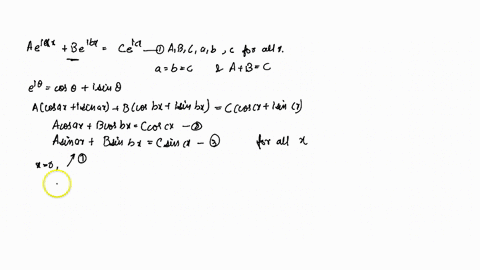 Ae^{iax} + Be^{ibx} = Ce^{icx} — ① A,B,C,a,b,c for all x.
a=b=c & A+B=C
e^{iθ} = cosθ + isinθ
A(cosax+isinax) + B(cosbx+isinbx) = C(coscx+isincx)
Acosax + Bcosbx = Ccoscx — ②
Asinax + Bsinbx = Csincx — ③ for all x
x=0, ↗ ②